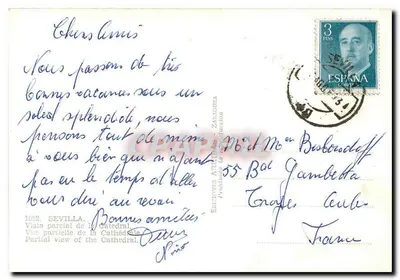 Chers Amis
Nous passons de très
bonnes vacances sous un
soleil splendide, nous
pensons tout de même
à vous bien qu'n'ayant
pas eu le temps d'aller
vous dire au revoir
Bonnes amitiés
1062. SEVILLA.
Vista parcial de la Catedral.
Vue partielle de la Cathédrale.
Partial view of the Cathedral.
3
PTAS
ESPAÑA
CORREOS
M et Mme
55 Bd Gambetta
Troyes Aube
France